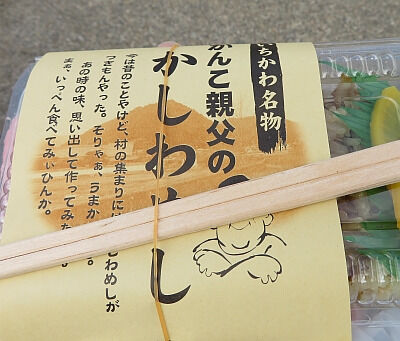 ちかわ名物
がんこ親父の
かしわめし
今は昔のことやけど、村の集まりに わめしが
つきもんやった。そりゃぁ、うまか 。
あの時の味、思い出して作ってみた
まぁ、いっぺん食べてみぃひんか。